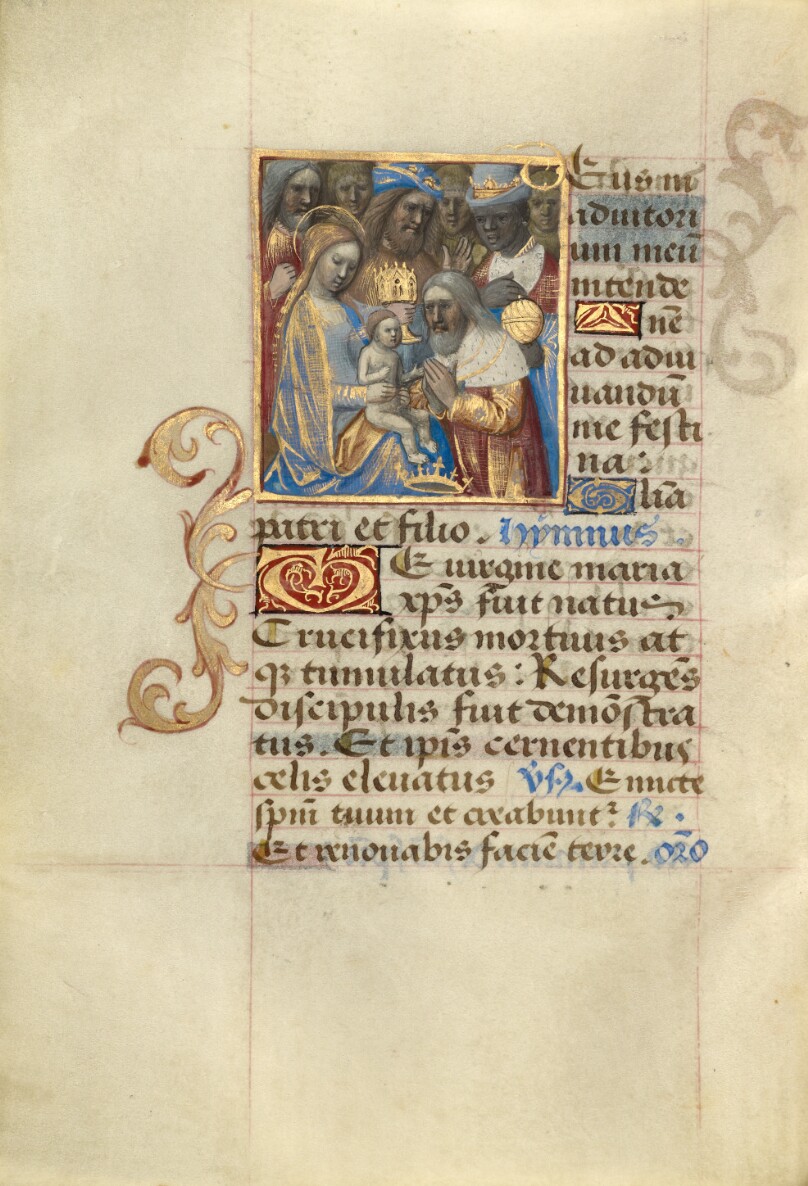 Eus in
adiutori
um meū
intende
nē
ad adiu
uandū
me festi
na.
lia
patri et filio. hymnus.
E uirgine maria
xp̄s fuit natus
Crucifixus mortuus at
qȝ tumulatus: Resurgēs
discipulis fuit demōstra
tus. Et ip̄is cernentibus
celis eleuatus v̄s. Emicte
spm̄ tuum et creabunt᷑ ℟.
Et renouabis faciē terre. or̄o